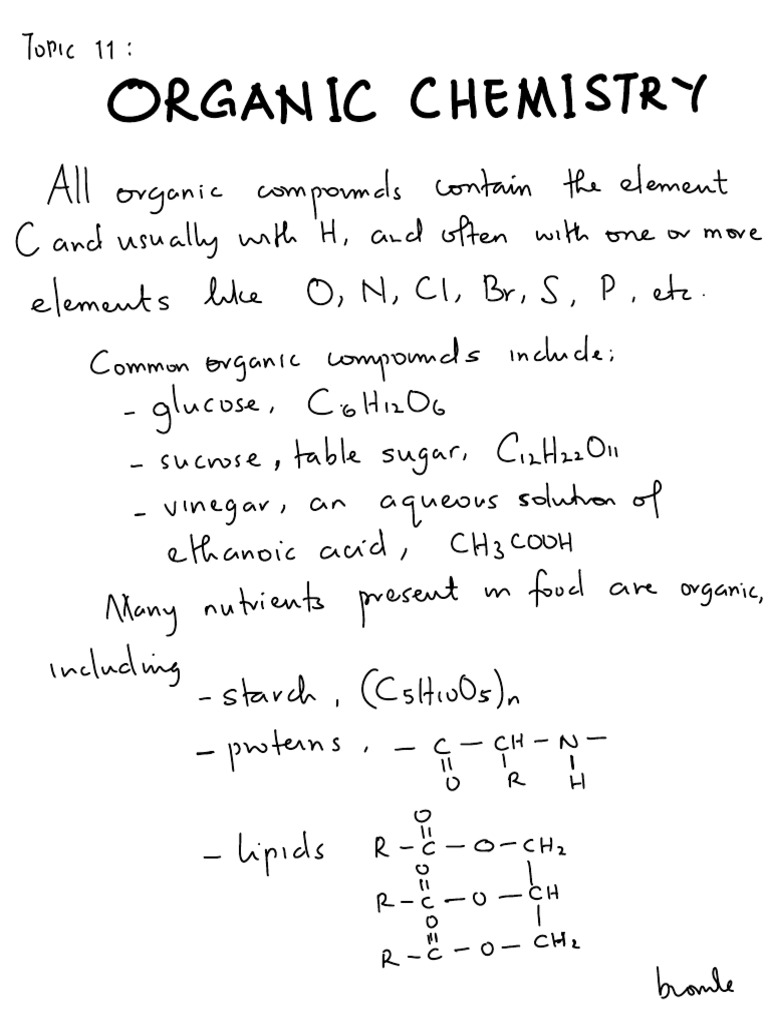 Topic 11:
ORGANIC CHEMISTRY
All organic compounds contain the element
C and usually with H, and often with one or more
elements like O, N, Cl, Br, S, P, etc.
Common organic compounds include:
- glucose, C6H12O6
- sucrose, table sugar, C12H22O11
- vinegar, an aqueous solution of
ethanoic acid, CH3COOH
Many nutrients present in food are organic,
including
- starch, (C5H10O5)n
- proteins, — C — CH — N —
O R H
- lipids
O
R — C — O — CH2
O
R — C — O — CH
O
R — C — O — CH2